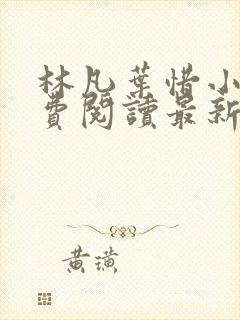 林凡葉惜小
費閱讀最新
黃璜